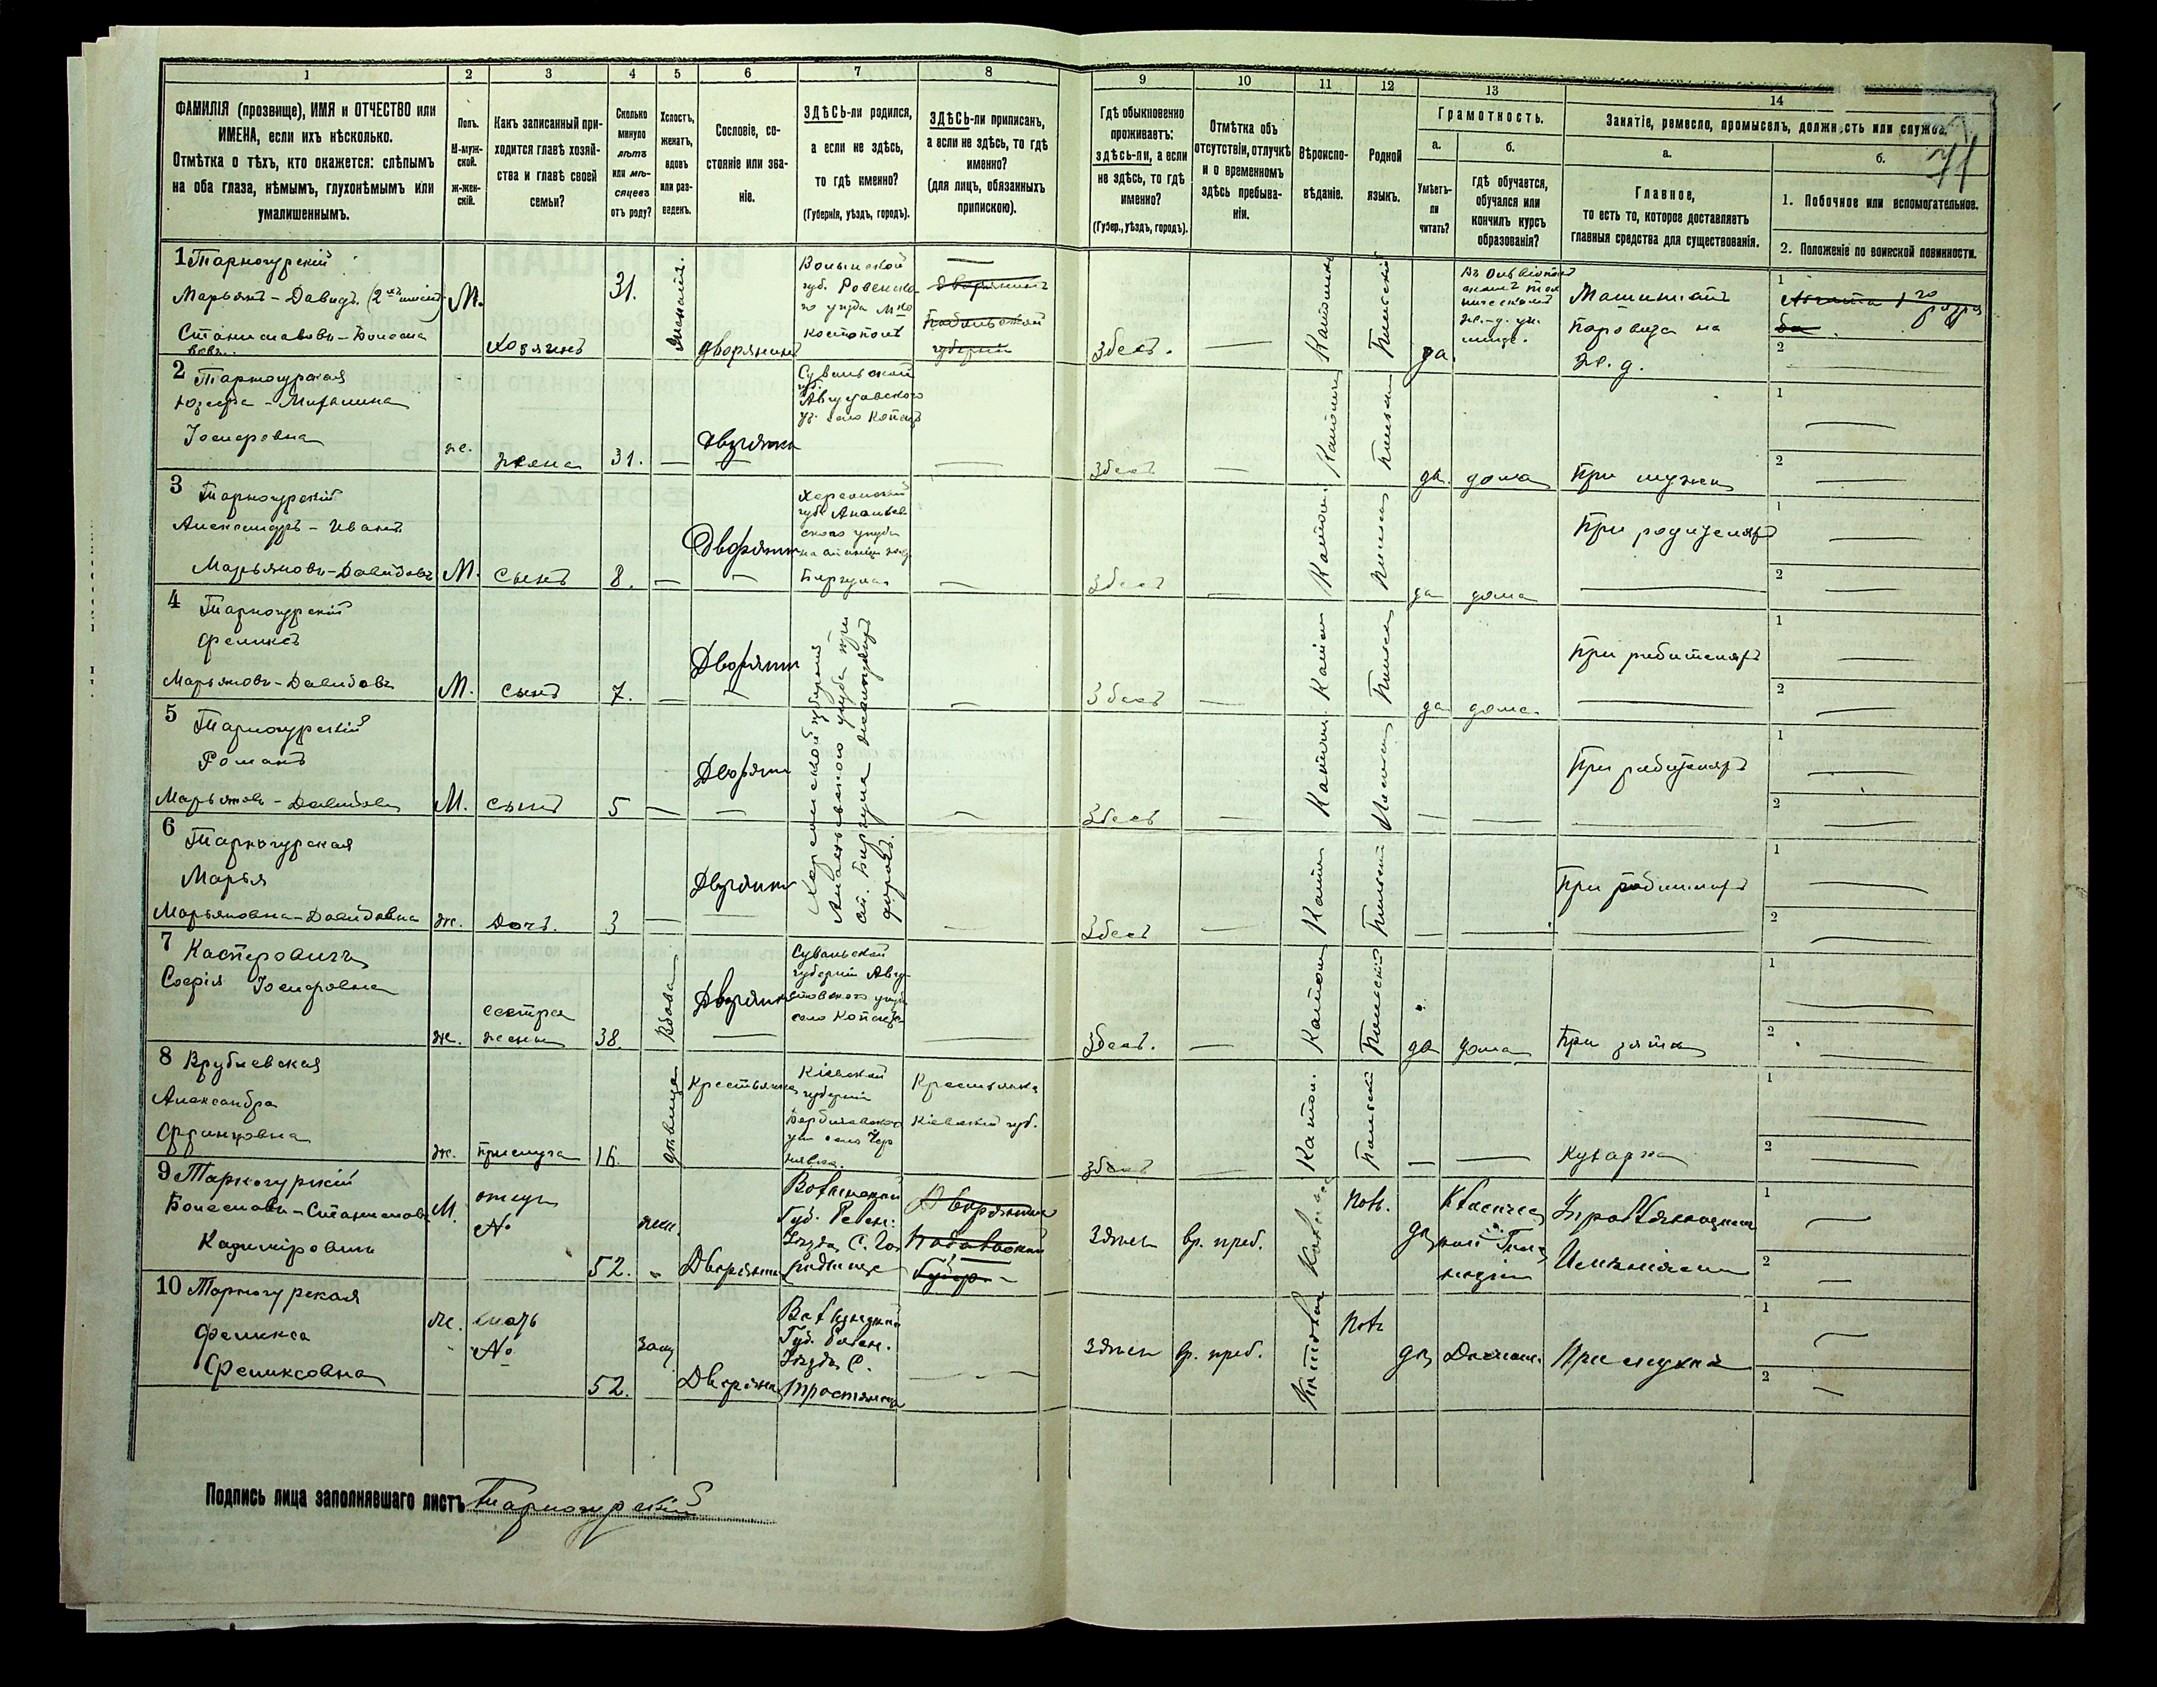 1
2
3
4
5
6
7
8
ФАМИЛІЯ (прозвище), ИМЯ и ОТЧЕСТВО или
ИМЕНА, если ихъ нѣсколько.
Отмѣтка о тѣхъ, кто окажется: слѣпымъ
на оба глаза, нѣмымъ, глухонѣмымъ или
умалишеннымъ.
Полъ.
М-муж-
ской.
Ж-жен-
скій.
Какъ записанный при-
ходится главѣ хозяй-
ства и главѣ своей
семьи?
Сколько
минуло
лѣтъ
или мѣ-
сяцевъ
отъ роду?
Холостъ,
женатъ,
вдовъ
или раз-
веденъ.
Сословіе, со-
стояніе или зва-
ніе.
ЗДѢСЬ-ли родился,
а если не здѣсь,
то гдѣ именно?
(Губернія, уѣздъ, городъ).
ЗДѢСЬ-ли приписанъ,
а если не здѣсь, то гдѣ
именно?
(для лицъ, обязанныхъ
припискою).
9
10
11
12
13
14
Гдѣ обыкновенно
проживаетъ:
здѣсь-ли, а если
не здѣсь, то гдѣ
именно?
(Губер., уѣздъ, городъ).
Отмѣтка объ
отсутствіи, отлучкѣ
и о временномъ
здѣсь пребыва-
ніи.
Вѣроиспо-
вѣданіе.
Родной
языкъ.
Грамотность.
а.
б.
Умѣетъ-
ли
читать?
гдѣ обучается,
обучался или
кончилъ курсъ
образованія?
Занятіе, ремесло, промыселъ, должность или служба.
а.
б.
Главное,
то есть то, которое доставляетъ
главныя средства для существованія.
1. Побочное или вспомогательное.
2. Положеніе по воинской повинности.
1 Тарногурскій
Марьянъ-Давидъ
М.
Хозяинъ
31.
Женатъ.
дворянинъ
Волынской
губ. Ровенска
го уѣзда
Костополь
дворянинъ
Подольской
губерніи
Здѣсь.
—
Католик
Польскій
да.
Машинистъ
паровоза на
ж. д.
1
2
2 Тарногурская
Юзефа-Михалина
Іосифовна
же.
жена
31.
—
дворянка
Сувальской
губ.
Августовскаго
у. село
—
Здѣсь
—
да.
дома
При мужѣ
1
2
3 Тарногурскій
Александръ-Иванъ
Марьяновъ-Давидовъ
М.
сынъ
8.
—
Дворянин
Херсонской
губ. Ананьев
скаго уѣзда
на станціи
Бирзула
—
Здѣсь
—
да
дома
При родителяхъ
1
2
4 Тарногурскій
Феликсъ
Марьяновъ-Давидовъ
М.
сынъ
7.
—
Дворянин
Херсонской губерніи
Ананьевскаго уѣзда при
ст. Бирзула
—
Здѣсь
—
да
дома.
При родителяхъ
1
2
5 Тарногурскій
Романъ
Марьяновъ-Давидовъ
М.
сынъ
5
—
Дворянин
—
Здѣсь
—
При родителяхъ
1
2
6 Тарногурская
Марья
Марьяновна-Давидовна
же.
Дочь.
3
—
Дворянка
—
Здѣсь
—
При родителяхъ
1
2
7 Касперовичъ
Софія Іосифовна
же.
сестра
жены
38.
Вдова
Дворянка
Сувальской
губерніи Авгу-
стовскаго уѣзда
село
—
Здѣсь.
—
Католич
Польскій
да
дома
При зятѣ
1
2
8 Врублевская
Александра
Францовна
же.
прислуга
16.
дѣвица
крестьянка
Кіевской
губерніи
Бердичевскаго
Крестьянка
Кіевской губ.
Здѣсь
—
Катол.
Польскій
—
Кухарка
1
2
9 Тарногурскій
Болеславъ-Станиславъ
Казиміровичъ
М.
отецъ
№
52.
жен.
Дворянинъ
Волынской
Губ. Ровен.
Уѣзда, С.
Дворянинъ
Подольской
Губер.
Здѣсь
вр. преб.
Пол.
да
Управляющій
Имѣніями
1
2
10 Тарногурская
Феликса
Феликсовна
же.
мать
№
52.
зам.
Дворянка
Волынской
Губ. Ровен.
Уѣзда, С.
Тростянецъ
Здѣсь
вр. преб.
Пол.
да
Домаш.
При мужѣ
1
2
Подпись лица заполнявшаго листъ Тарногурскій